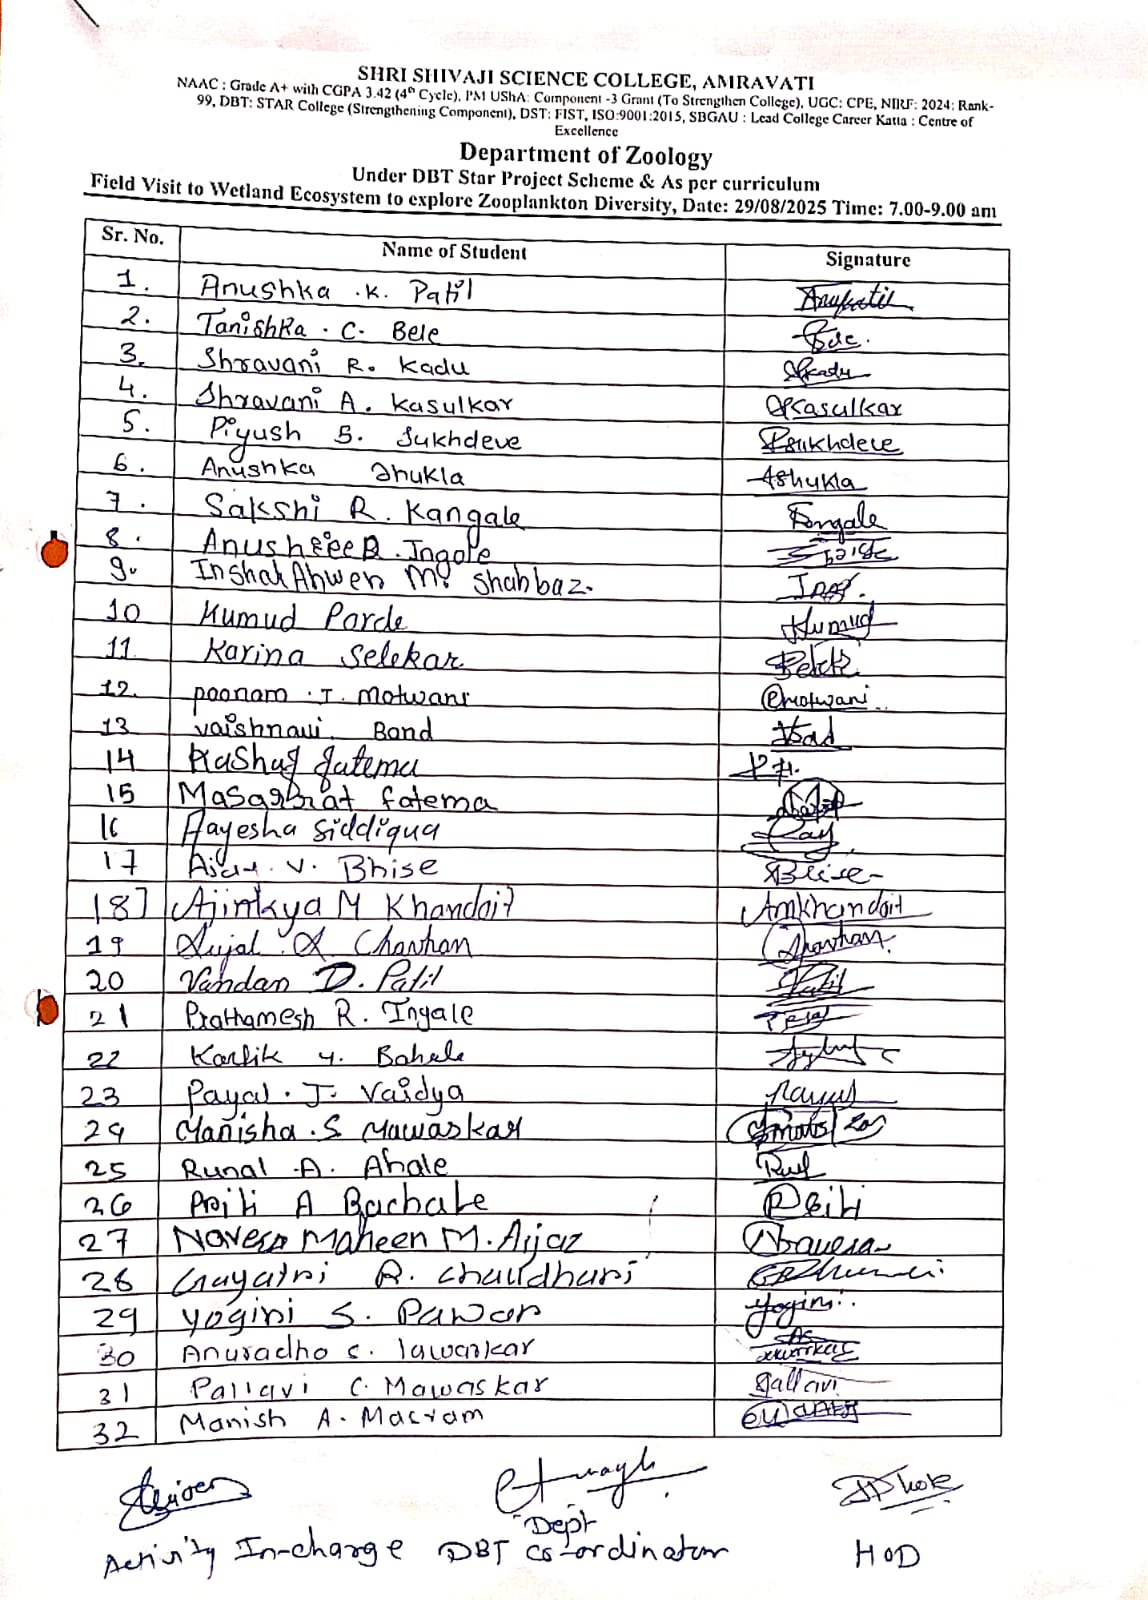 SHRI SHIVAJI SCIENCE COLLEGE, AMRAVATI
NAAC : Grade A+ with CGPA 3.42 (4th Cycle), PM UShA: Component -3 Grant (To Strengthen College), UGC: CPE, NIRF: 2024: Rank-
99, DBT: STAR College (Strengthening Component), DST: FIST, ISO:9001:2015, SBGAU : Lead College Career Katta : Centre of
Excellence
Department of Zoology
Under DBT Star Project Scheme & As per curriculum
Field Visit to Wetland Ecosystem to explore Zooplankton Diversity, Date: 29/08/2025 Time: 7.00-9.00 am
Sr. No. Name of Student Signature
1. Anushka .K. Patil
2. Tanishka . C. Bele
3. Shravani R. Kadu
4. Shravani A. Kasulkar Kasulkar
5. Piyush S. Sukhdeve PSukhdeve
6. Anushka Shukla AShukla
7. Sakshi R. Kangale Kangale
8. Ingole
9. M. Shahbaz.
10 Kumud Parde Kumud
11 Karina Selekar
12. poonam . J. Motwani Pmotwani
13 vaishnavi Band
14 Kashaf fatema
15 fatema
16 Aayesha Siddiqua
17 Ajay . V. Bhise
18] Ajinkya M Khandait AMKhandait
19 Sujal . A. Chavhan Chavhan
20 Vandan D. Patil Patil
21 Prathamesh R. Ingale
22 Kartik Y. Bahele
23 Payal . J. Vaidya
24 Manisha . S Mawaskar
25 Runal . A. Ahale
26 Priti A Bachale Priti
27 Navera Maheen M. Aijaz Navera
28 Gayatri R. Chaudhari
29 Yogini S. Pawar Yogini
30 Anuradha S. Jawarkar
31 Pallavi C. Mawaskar Pallavi
32 Manish A. Macram
Activity In-charge
Dept
DBT Co-ordinator
HOD